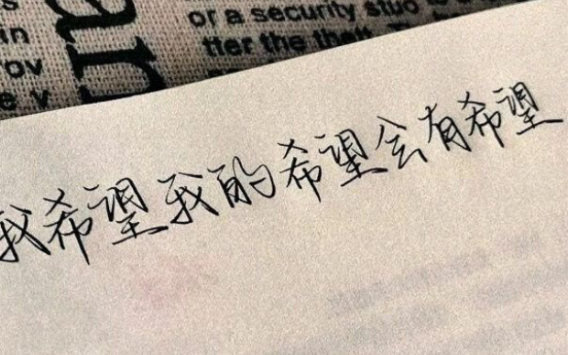 or a security stud
tier the theft. T
in
ov
e v
ar
我希望我的希望会有希望